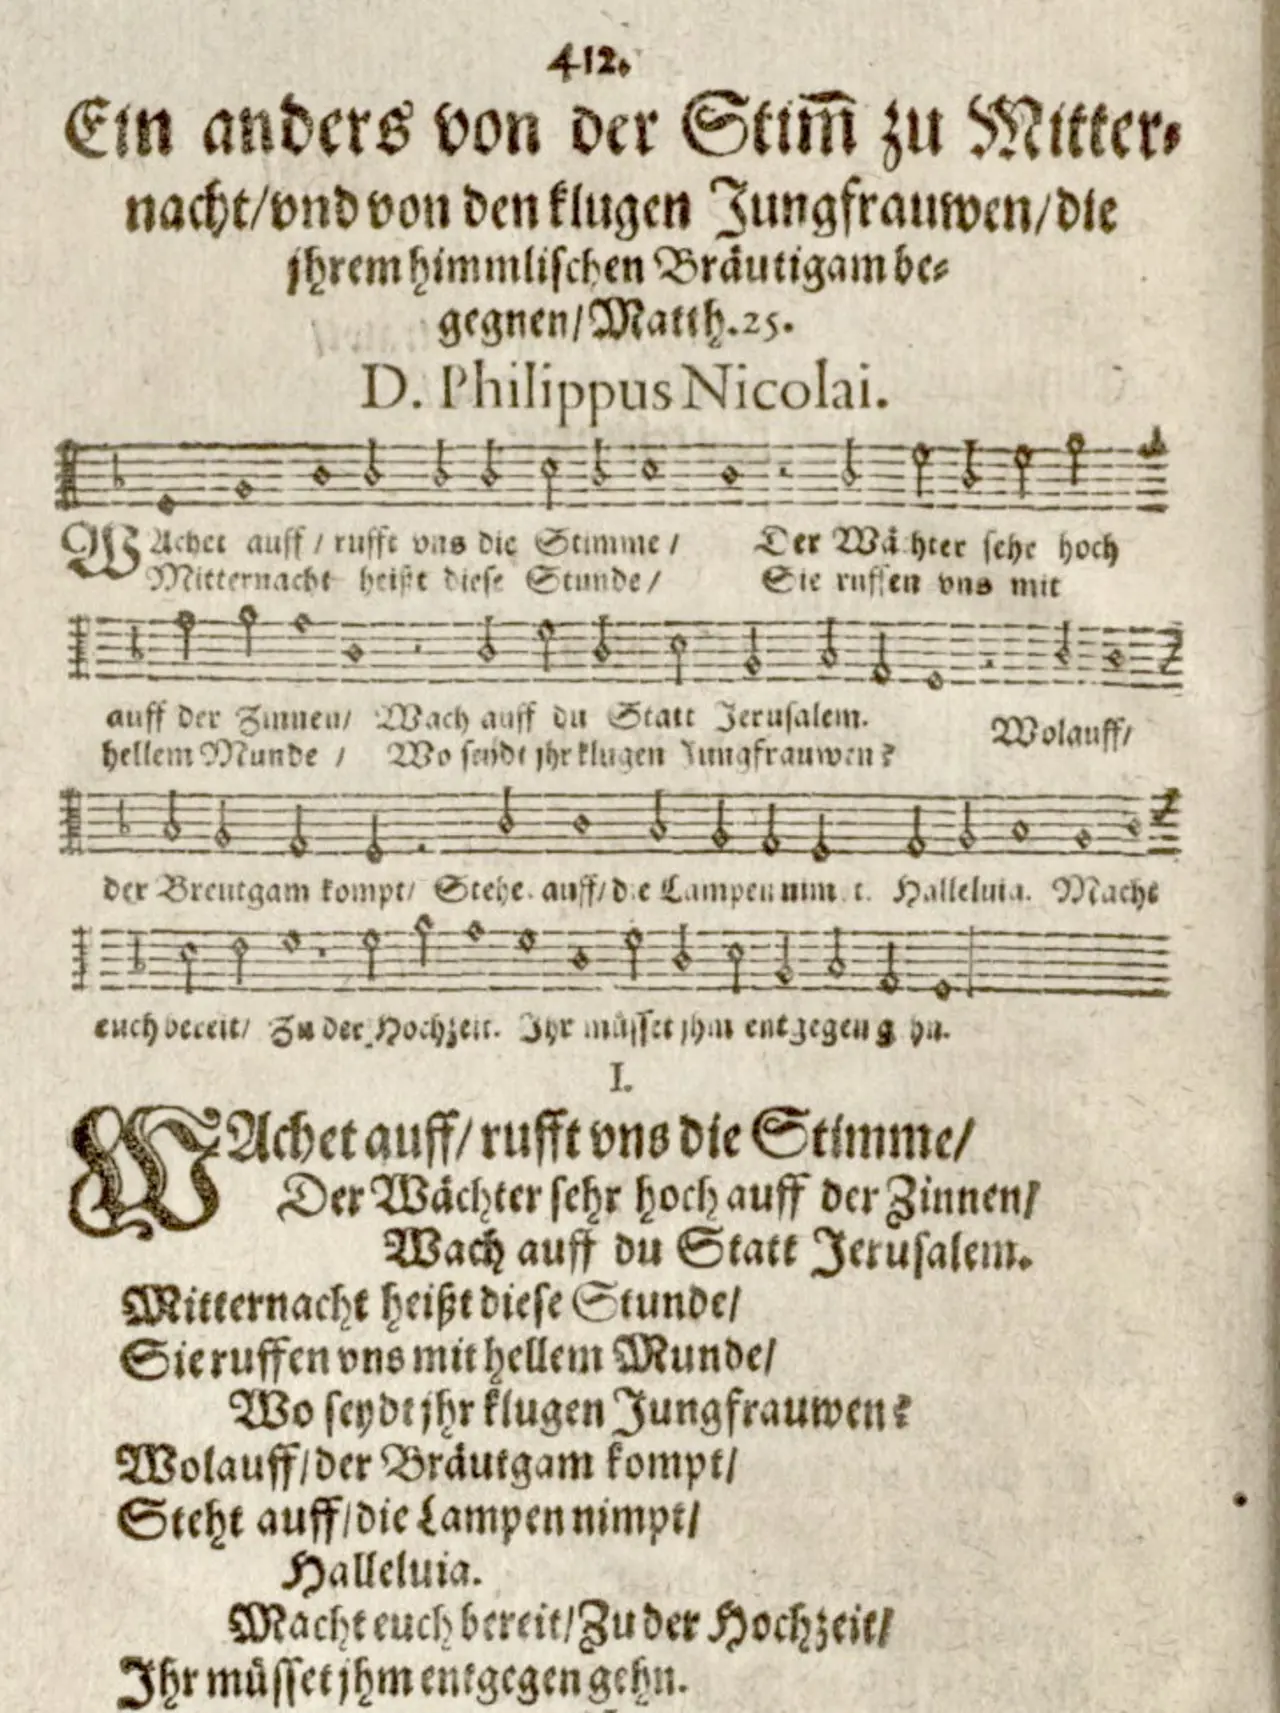 412.
Ein anders von der Stim̅ zu Mitter⸗
nacht/vnd von den klugen Jungfrauwen/die
jhrem himmlischen Bräutigam be⸗
gegnen/Matth.25.
D. Philippus Nicolai.
WAchet auff / rufft vns die Stimme / Der Wächter sehr hoch
Mitternacht heißt diese Stunde/ Sie ruffen vns mit
auff der Zinnen/ Wach auff du Statt Jerusalem. Wolauff/
hellem Munde / Wo seydt jhr klugen Jungfrauwen?
der Breutgam kompt/ Stehe auff/die Lampen nimpt. Halleluia. Macht
euch bereit/ Zu der Hochzeit. Ihr müsset jhm entgegen gehn.
I.
WAchet auff/ rufft vns die Stimme/
Der Wächter sehr hoch auff der Zinnen/
Wach auff du Statt Jerusalem.
Mitternacht heißt diese Stunde/
Sie ruffen vns mit hellem Munde/
Wo seydt jhr klugen Jungfrauwen?
Wolauff/der Bräutgam kompt/
Steht auff/die Lampen nimpt/
Halleluia.
Macht euch bereit/Zu der Hochzeit/
Ihr müsset jhm entgegen gehn.